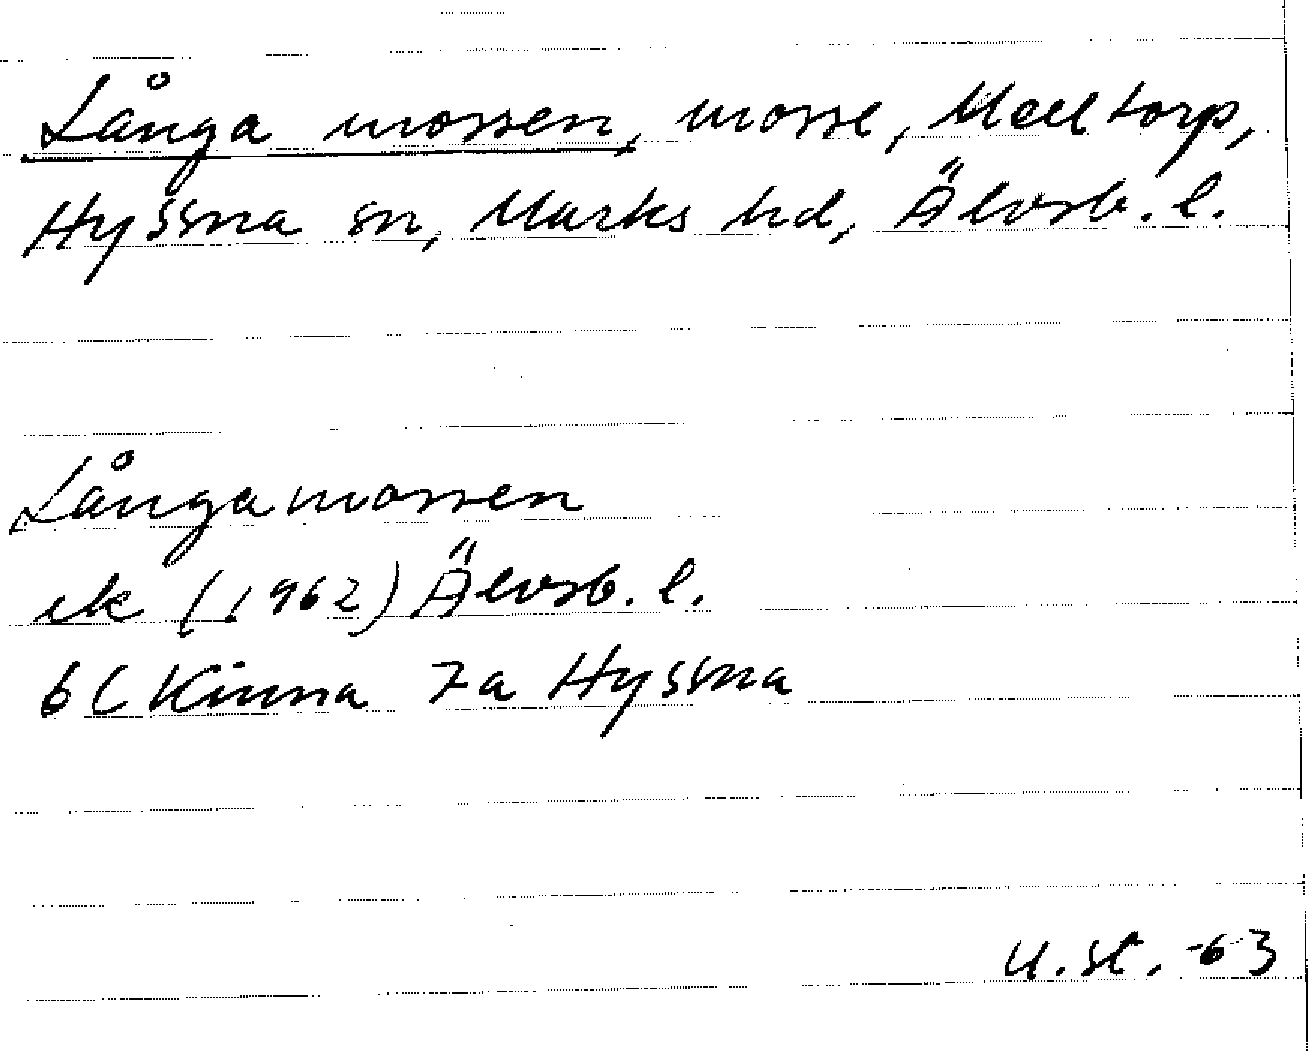 Långa mossen, mosse, Melltorp,
Hyssna sn, Marks hd, Älvsb. l.
Långamossen
ek (1962) Älvsb. l.
6C Kinna 7a Hyssna
U. St. -63